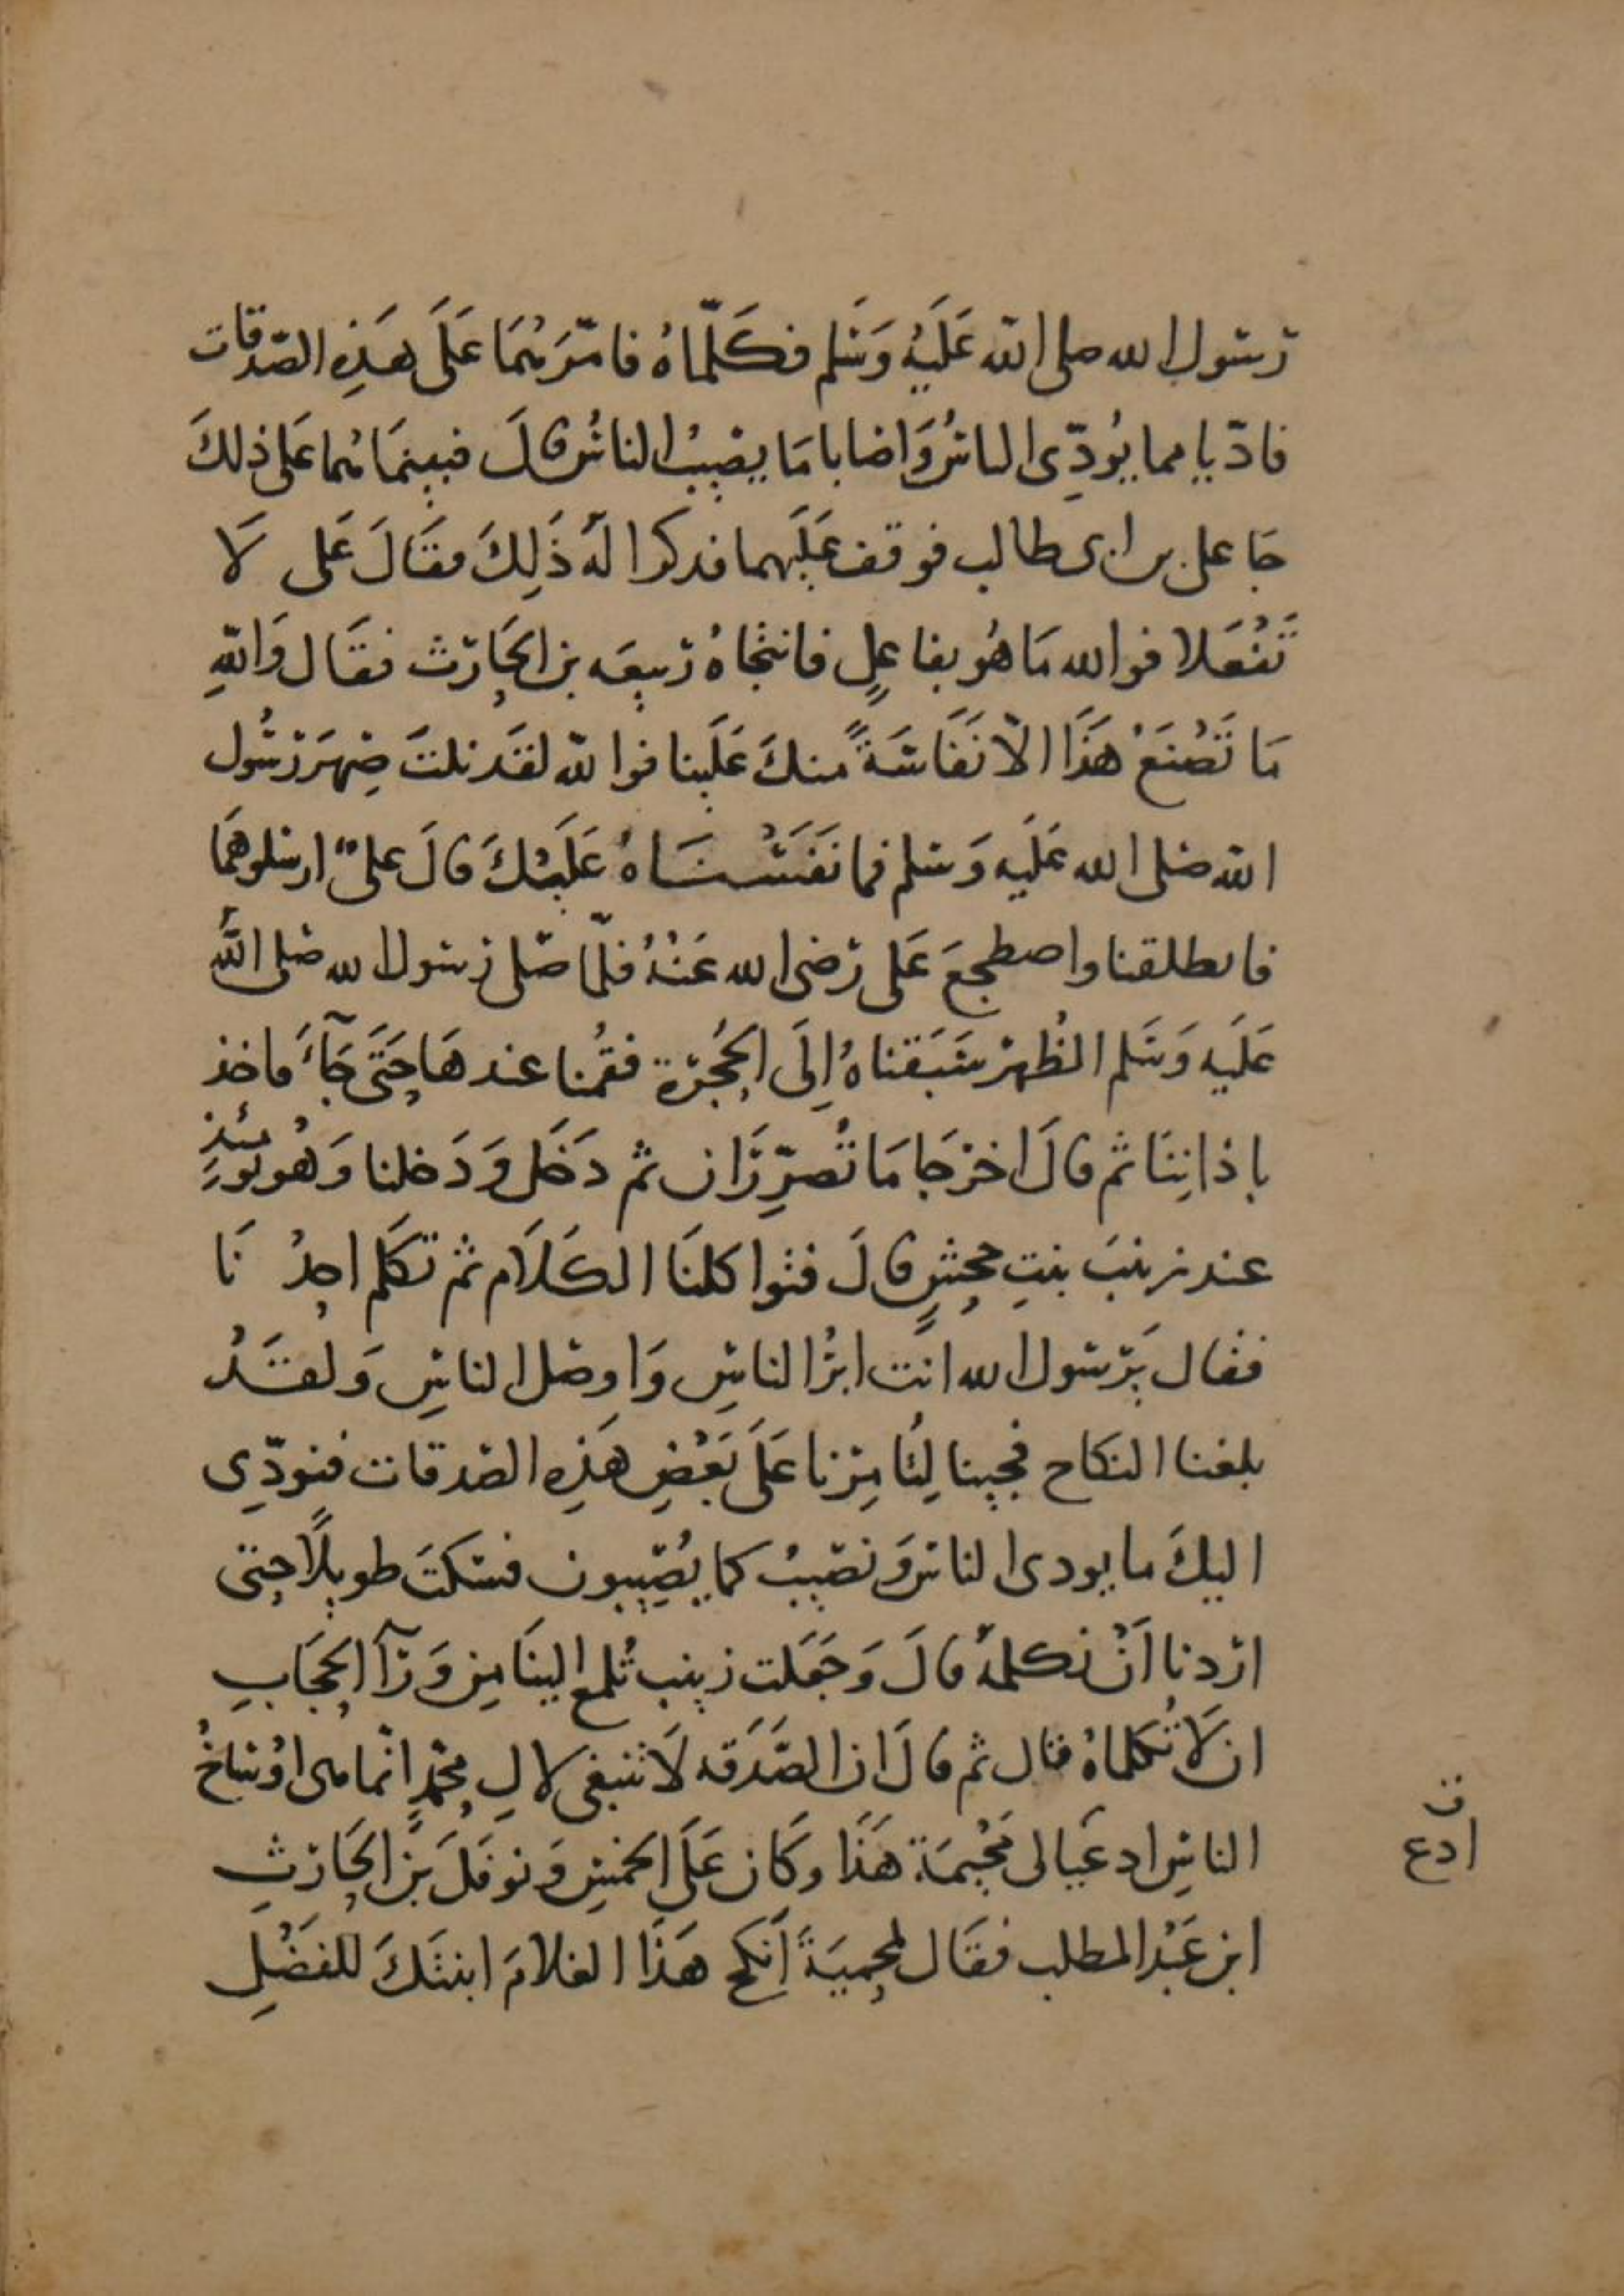 رسول الله صلى الله عَلَيْهِ وَسَلم فكَلّمَاهُ فامّرَهُمَا عَلَى هَذِهِ الصّدقات
فادّيا مما يُودِّى الناسُ وَاصابا مَا يصِيبُ الناسُ قالَ فبينمَا هُما عَلى ذلكَ
جَا على بن ابى طالب فوقف عَلَيهما فذكرا لَهُ ذَلِكَ فقَالَ عَلى لَا
تَفْعَلا فوالله مَا هُو بفاعلٍ فانتحَاهُ ربيعَه بن الحَارث فقَال وَاللهِ
مَا تَصْنَعُ هَذَا الّا نَفَاسَةً منكَ عَلَينا فوالله لقَد نلتَ صِهرَ رسُول
الله صَلى الله عَلَيه وَسَلم فما نَفَسْنَاهُ عَلَيْكَ قالَ علىٌّ ارسلوهمَا
فانطلقنا واصطجعَ عَلى رَضى الله عَنْهُ فلمّا صَلّى رسول الله صَلى اللهُ
عَلَيه وَسَلم الظُهرَ سَبَقناهُ إِلَى الحُجرَة فقُمنا عندهَا حَتَى جَآءَ فاخذ
باذانِنَا ثم قالَ اخرجَا مَا تُصَرِّرَان ثم دَخَل وَدَخلنا وَهُو يَومئذٍ
عند زينبَ بنتِ جحشٍ قالَ فتواكلنَا الكَلَام ثم تكلم احدُنَا
فقال يَرسول الله انت ابرُّ الناسِ وَاوصل الناسِ وَلقَدْ
بلغنا النكاح فجينا لِتُامِرنا عَلَى بَعْضِ هَذِهِ الصَدقات فنودِّى
اليكَ ما يودى الناسُ وَنصيبُ كما يُصِيبون فسَكتَ طويلًا حتى
اردنا اَنْ نكلمهُ قالَ وَجَعَلت زينب تُلمع الينَا مِن وَرَآ الحجَابِ
ان لَا تُكلماهُ قال ثم قالَ ان الصَّدَقه لَا تنبغى لالِ محمّدٍ انّما هى اوْسَاخُ
الناسِ ادعيَا لى مَحْمِيَة هَذَا وكَان عَلَى الخمسِ وَنوفَلَ بنَ الحَارثِ
ابن عَبْد المطلب فقَال لمحميَةَ اَنكح هَذَا الغلامَ ابنتَكَ للفَضْلِ
ف
ادع